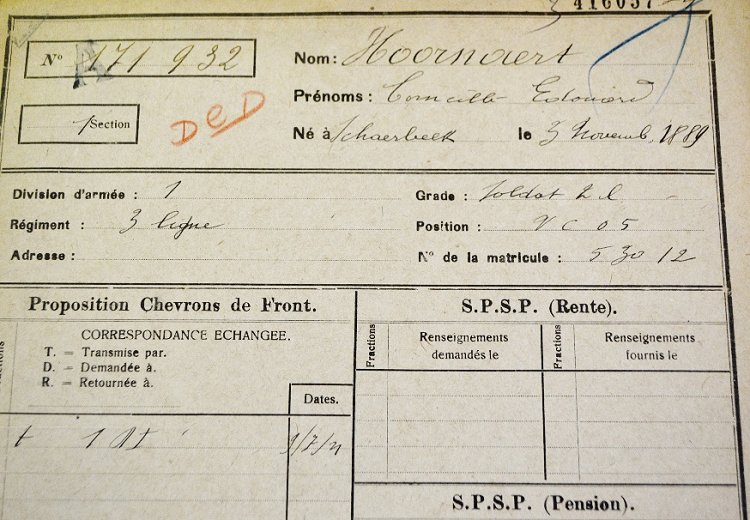 416037
N° 171932
Nom: Hoornaert
Prénoms: Corneille Edouard
1 Section
DCD
Né à Schaerbeek le 3 Novemb. 1889
Division d'armée : 1
Grade : Soldat 2 cl
Régiment : 3 ligne
Position : V C 05
Adresse :
N° de la matricule : 53012
Proposition Chevrons de Front.
S.P.S.P. (Rente).
CORRESPONDANCE ECHANGEE.
T. = Transmise par.
D. = Demandée à.
R. = Retournée à.
Dates.
Fractions
Renseignements demandés le
Fractions
Renseignements fournis le
t 1 DI
S.P.S.P. (Pension).